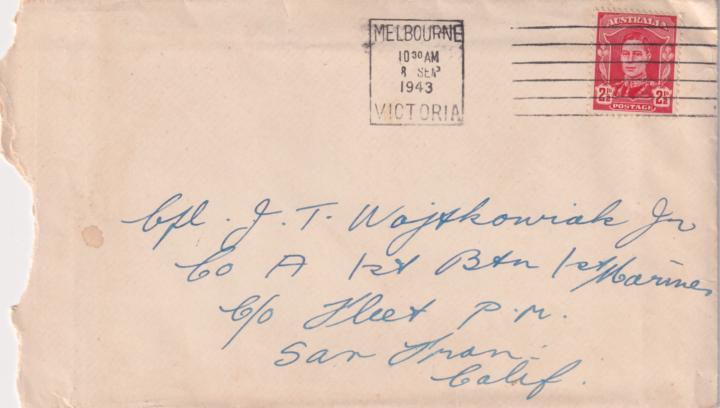 MELBOURNE
10 30 AM
8 SEP
1943
VICTORIA
AUSTRALIA
2½D 2½D
POSTAGE
Cpl. J. T. Wojtkowiak Jr
Co A 1st Btn 1st Marines
C/o Fleet P.M.
San Fran.
Calif.